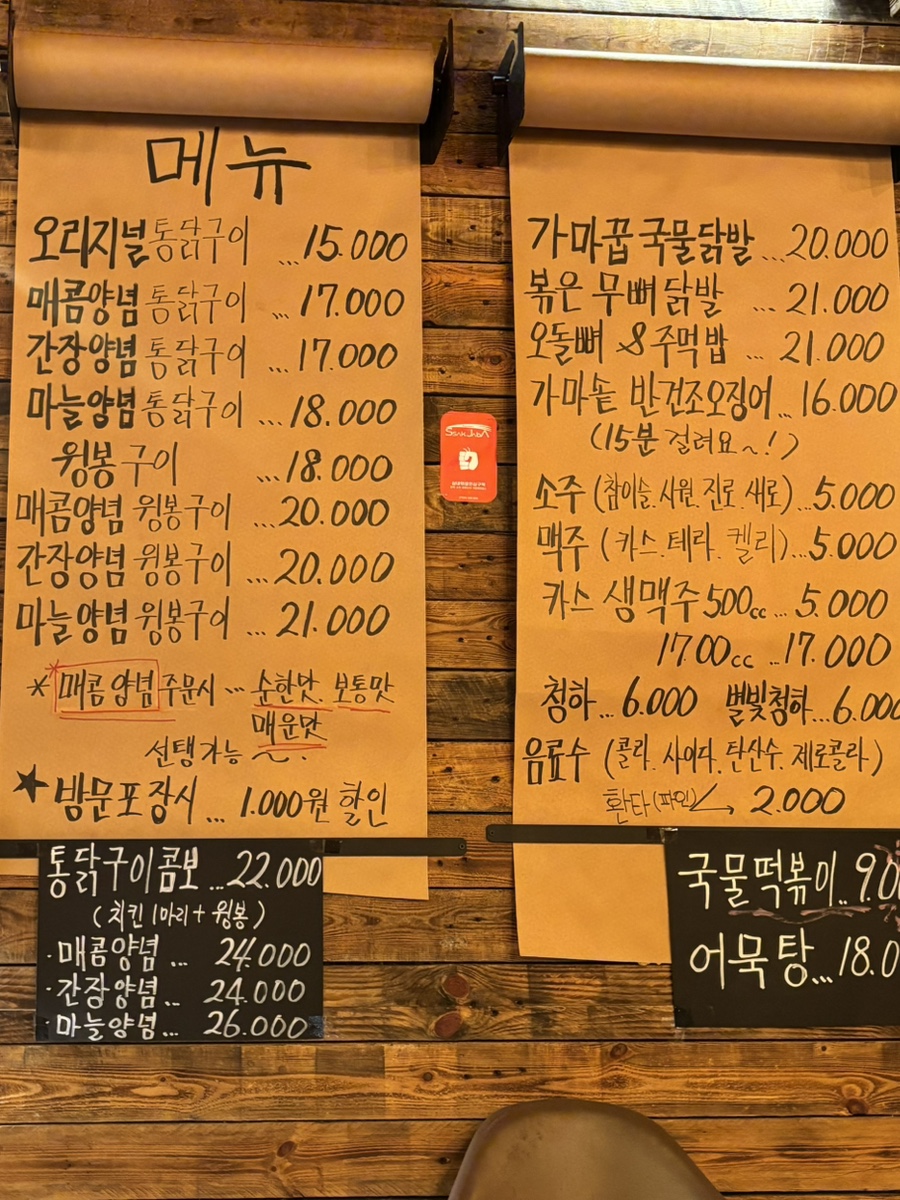 메뉴
오리지널통닭구이 ...15.000
매콤양념통닭구이 ...17.000
간장양념통닭구이 ...17.000
마늘양념통닭구이 ...18.000
윙봉구이 ...18.000
매콤양념 윙봉구이 ...20.000
간장양념 윙봉구이 ...20.000
마늘양념 윙봉구이 ...21.000
* 매콤양념주문시 ... 순한맛 보통맛
매운맛
선택가능~.
★방문포장시 ... 1.000원 할인
통닭구이콤보 ...22.000
(치킨 1마리+윙봉)
·매콤양념 ... 24.000
·간장양념... 24.000
·마늘양념... 26.000
가마꿉국물닭발 ...20.000
볶은 무뼈닭발 ... 21.000
오돌뼈 & 주먹밥 ... 21.000
가마솥 반건조오징어 ...16.000
(15분 걸려요~!)
소주 (참이슬.시원.진로.새로) ...5.000
맥주 (카스.테라.켈리)...5.000
카스 생맥주 500cc ... 5.000
1700cc ...17.000
청하 ...6.000 별빛청하...6.000
음료수 (콜라.사이다.탄산수.제로콜라)
환타(파인) 2.000
국물떡볶이..9.0
어묵탕...18.0